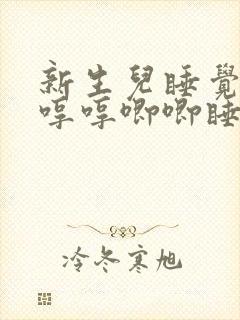 新生兒睡覺
哼哼唧唧睡
冷冬寒旭